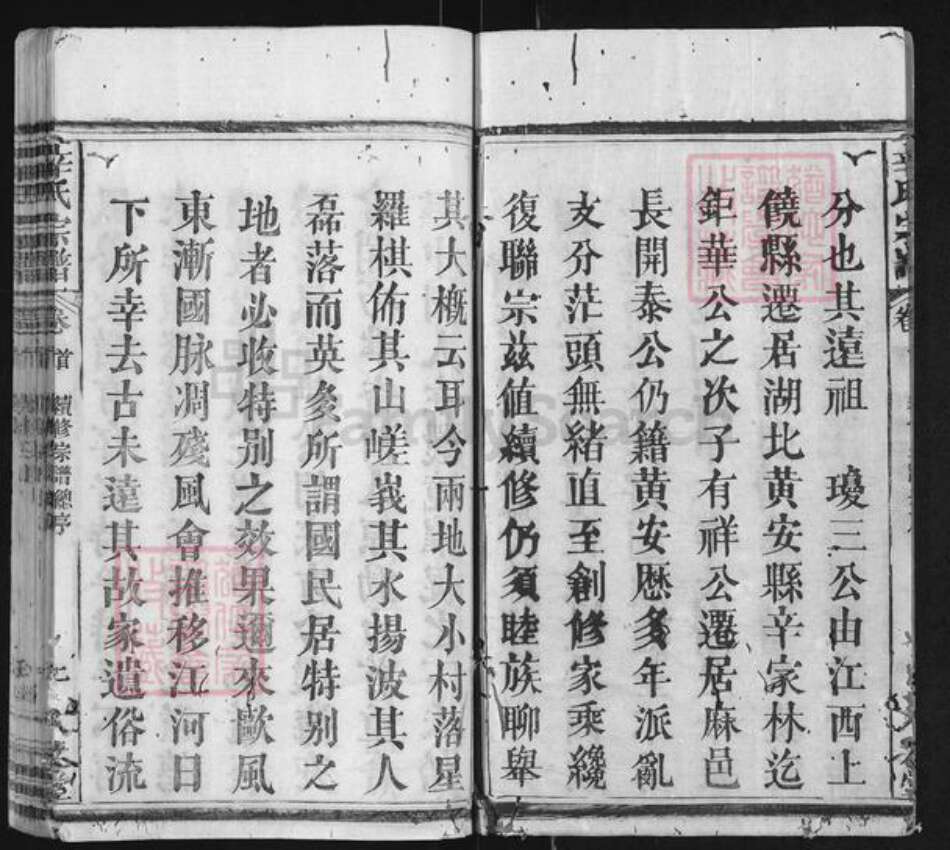 分也其遠祖　瓊三公由江西上
饒縣遷居湖北黃安縣辛家林迄
鉅華公之次子有祥公遷居麻邑
長開泰公仍籍黃安歷多年派亂
支分茫頭無緒直至創修家乘纔
復聯宗茲值續修仍須睦族聊舉
其大概云耳今兩地大小村落星
羅棋佈其山嵯峩其水揚波其人
磊落而英多所謂國民居特別之
地者必收特別之效果邇來歐風
東漸國脉凋殘風會推移江河日
下所幸去古未遠其故家遺俗流
辛氏宗譜
卷首
續修宗譜總序
FamilySearch